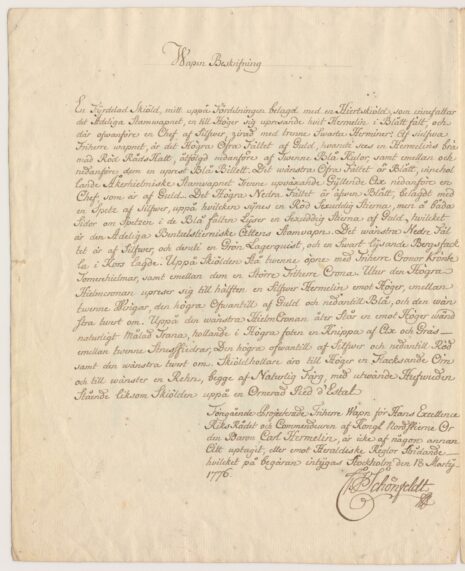 Wapen Beskrifning
En Fyrdelad Skiöld, mitt uppå Fördelningen belagd med en Hiertskiöld, som innefattar
det Adeliga Stamwapnet, en till Höger sig upresande hvit Hermelin i Blått fält, och
där ofwanföre en Chef af Silfwer, zirad med trenne Swarta Herminer: Af sielfwa
Friherre wapnet, är det Högra Öfra Fältet af Guld, hwaruti sees en Hermelins brä-
mad Röd RådsHatt, åtföljd nidanföre af Twenne Blå Kulor, samt emellan och
nedanföre dem en uprest Blå Billett. Det wänstra Öfra Fältet är Blått, innehol
lande Åkerhielmiske Stamwapnet Trenne upwäxande Gyldende Ax nedanföre en
Chef, som är af Guld. Det Högra Nedra Fältet är äfwen Blått, deladt med
en Spets af Silfwer, uppå hwilken synes en Röd Sexuddig Stierna, men å båda
Sidor om Spetsen i de Blå fälten Lyser en Sexuddig Stierna af Guld, hwilket
är den Adeliga Bentzelstierniske Ättens Stamvapn. Det wänstra Nedre Fäl
tet är af Silfwer, och deruti en Grön Lagerquist, och en Swart lysande Bergsfack
la i Kors lagde. Uppå Skiölden Stå twenne öpne med Friherre Cronor Krönte
Tornerhielmar, samt emellan dem en Större Friherre Crona. Utur den Högra
Hielmcronan upreser sig till hälften en Silfwer Hermelin emot Höger, emellan
twenne Wingar, den högra Ofwantill af Guld och nedantill Blå, och den wän
stra twert om. Uppå den wänstra HielmCronan åter Står en emot Höger wänd
naturligt Målad Trana, hollande i Högra foten en Knippa af Ax och Gräs
emellan twenne Strutsfiedrar, Den högra ofwantill af Silfwer och nedantill Röd
samt den wänstra twert om. Sköldhollare äro till Höger en Flacksande Örn
och till wänster en Rehn, begge af Naturlig Färg, med utwände Hufwuden
Stående liksom Skiölden uppå en Ornerad Pied d'Estal.
Föregående Projecterade Friherre Wapn för Hans Excellence
RiksRådet och Commendeuren af Kongl. Nordstierne Or
den Baron Carl Hermelin, är icke af någon annan
Ätt uptagit, eller emot Heraldiske Reglor Stridande
hwilket på begäran intygas Stockholm den 18 Martij
1776.
Schönfeldt